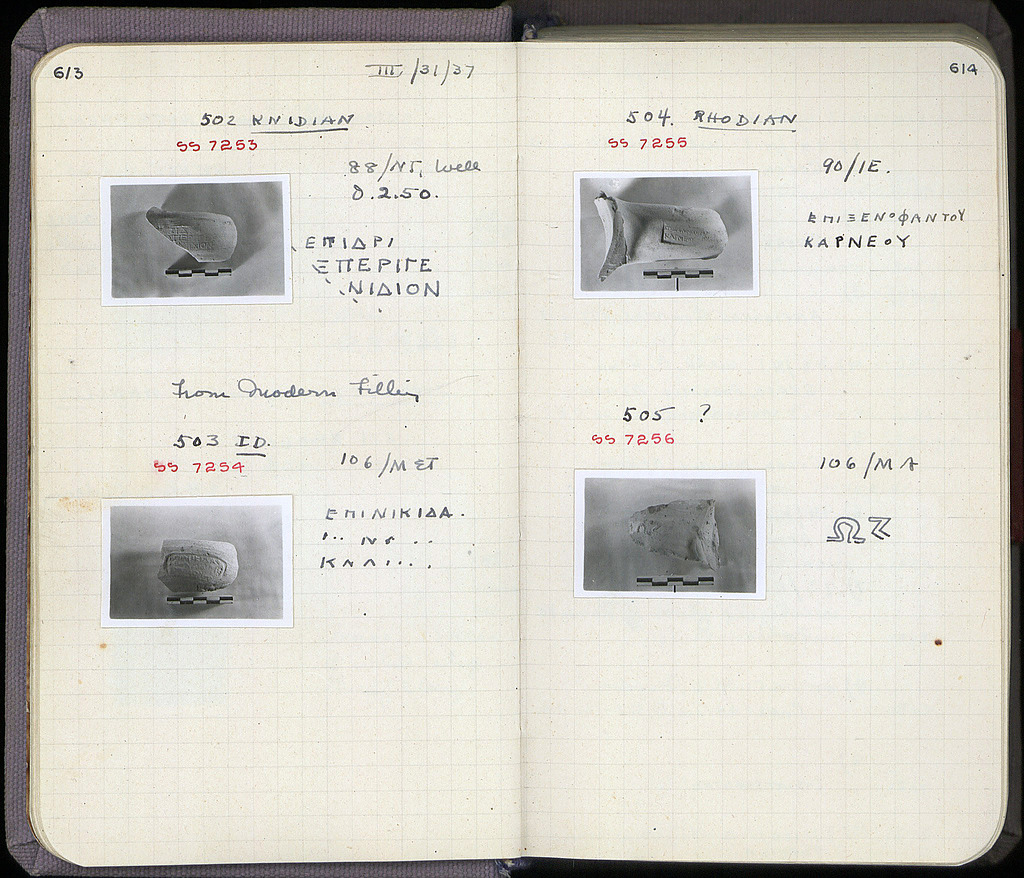 613
III/31/37
502 KNIDIAN
SS 7253
88/ΝΣΤ, Well
Δ.2.50.
ΕΠΙΔΡΙ
ΕΠΕΡΙΓΕ
ΝΙΔΙΟΝ
From Modern Filling
503 ID.
SS 7254
106/ΜΣΤ
ΕΠΙΝΙΚΙΔΑ.
614
504. RHODIAN
SS 7255
90/ΙΕ.
ΕΠΙΞΕΝΟΦΑΝΤΟΥ
ΚΑΡΝΕΟΥ
505 ?
SS 7256
106/ΜΑ